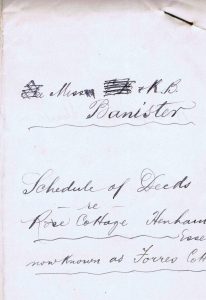 Miss & K. B.
Banister
Schedule of Deeds
re
Rose Cottage Henham
Esse
now known as Torres Cott